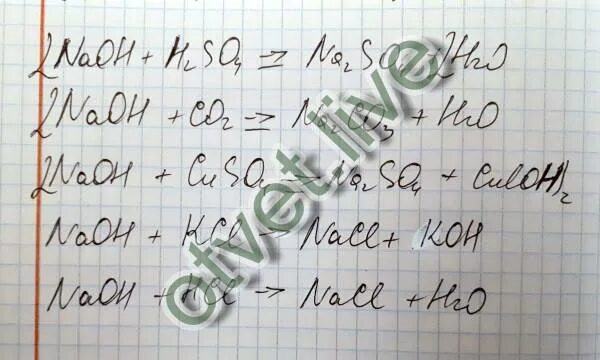 2NaOH + H₂SO₄ = Na₂SO₄ 2H₂O
2NaOH + CO₂ = Na₂CO₃ + H₂O
2NaOH + CuSO₄ → Na₂SO₄ + Cu(OH)₂
NaOH + KCl → NaCl + KOH
NaOH + HCl → NaCl + H₂O
otvet.live